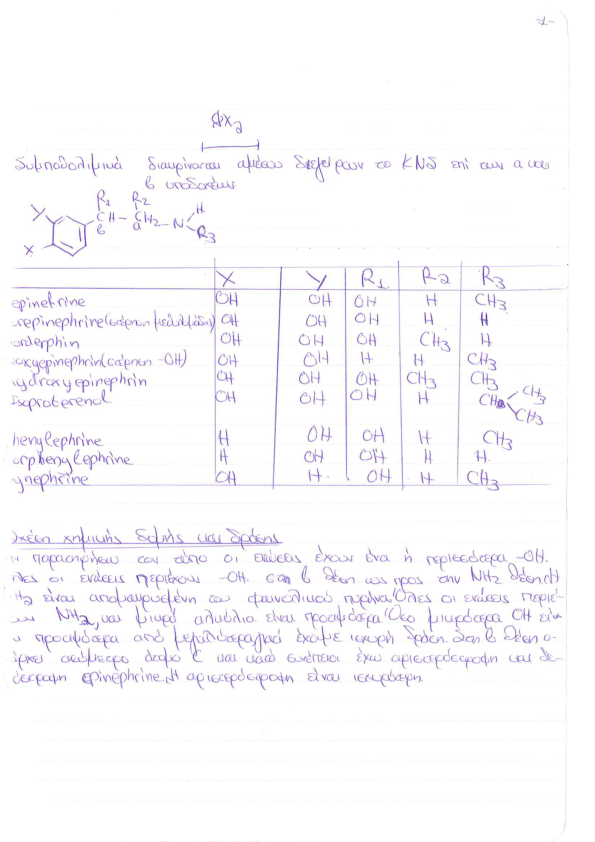 -1-
Φx2
Συμπαθομιμικά διακρίνονται αμέσων διεγείρουν το ΚΝΣ επί των α και
β υποδοχέων
R1 R2
Y CH - CH2 - N H
β α R3
X
X Y R1 R2 R3
epinefrine OH OH OH H CH3
orepinephrine (απάρτηση μεθυλομάδας) OH OH OH H H
orderphin OH OH OH CH3 H
oxyepinephrin (απάρτηση -OH) OH OH H H CH3
hydroxyepinephrin OH OH OH CH3 CH3
Isoproterenol OH OH OH H CH CH3 CH3
henylephrine H OH OH H CH3
orphenylephrine H OH OH H H
ynephrine OH H OH H CH3
χέση χημικής δομής και δράσης
παρατηρήσεις στον τύπο οι ενώσεις έχουν ένα ή περισσότερα -OH.
λες οι ενώσεις περιέχουν -OH στη β θέση ως προς την NH2 θέση. Η
H2 είναι απομακρυσμένη του φαινολικού πυρήνα. Όλες οι ενώσεις περιέ-
NH2, και μικρό αλκύλια είναι προτιμότερα. Όσο μικρότερα CH είν-
ι προτιμότερα από μεγαλύτερα γιατί έχουμε ισχυρή δράση. Στη β θέση υ-
άρχει ασύμμετρο άτομο C και κατά συνέπεια έχω αριστερόστροφη και δε-
ιόστροφη epinephrine. Η αριστερόστροφη είναι ισχυρότερη.